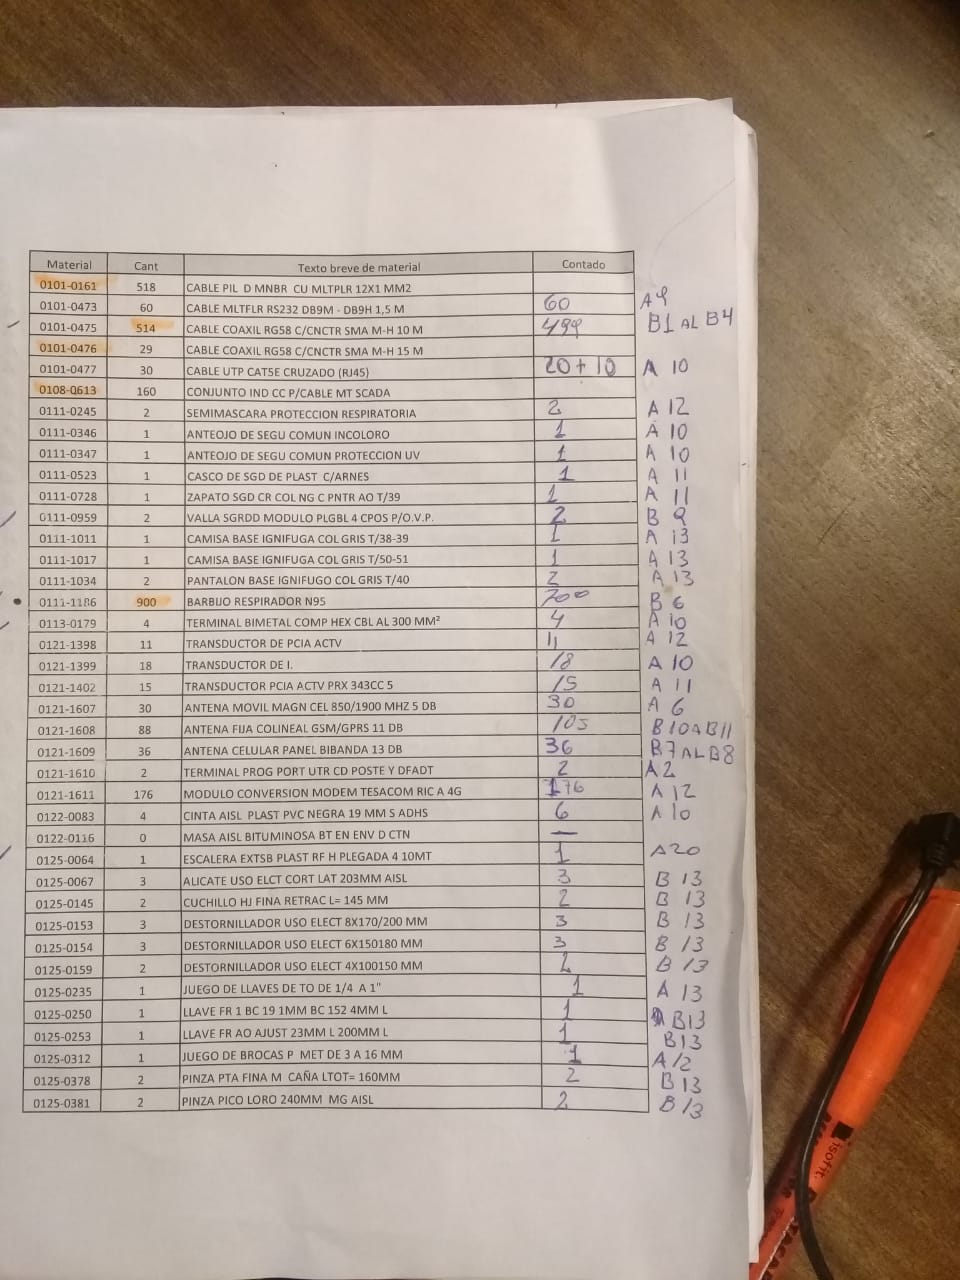 Material Cant Texto breve de material Contado
0101-0161 518 CABLE PIL D MNBR CU MLTPLR 12X1 MM2
0101-0473 60 CABLE MLTFLR RS232 DB9M - DB9H 1,5 M 60 A9
0101-0475 514 CABLE COAXIL RG58 C/CNCTR SMA M-H 10 M 499 B1 AL B4
0101-0476 29 CABLE COAXIL RG58 C/CNCTR SMA M-H 15 M
0101-0477 30 CABLE UTP CAT5E CRUZADO (RJ45) 20+10 A 10
0108-0613 160 CONJUNTO IND CC P/CABLE MT SCADA
0111-0245 2 SEMIMASCARA PROTECCION RESPIRATORIA 2 A 12
0111-0346 1 ANTEOJO DE SEGU COMUN INCOLORO 1 A 10
0111-0347 1 ANTEOJO DE SEGU COMUN PROTECCION UV 1 A 10
0111-0523 1 CASCO DE SGD DE PLAST C/ARNES 1 A 11
0111-0728 1 ZAPATO SGD CR COL NG C PNTR AO T/39 1 A 11
0111-0959 2 VALLA SGRDD MODULO PLGBL 4 CPOS P/O.V.P. 2 B 9
0111-1011 1 CAMISA BASE IGNIFUGA COL GRIS T/38-39 1 A 13
0111-1017 1 CAMISA BASE IGNIFUGA COL GRIS T/50-51 1 A 13
0111-1034 2 PANTALON BASE IGNIFUGO COL GRIS T/40 2 A 13
0111-1186 900 BARBIJO RESPIRADOR N95 700 B 6
0113-0179 4 TERMINAL BIMETAL COMP HEX CBL AL 300 MM² 4 A 10
0121-1398 11 TRANSDUCTOR DE PCIA ACTV 11 A 12
0121-1399 18 TRANSDUCTOR DE I. 18 A 10
0121-1402 15 TRANSDUCTOR PCIA ACTV PRX 343CC 5 15 A 11
0121-1607 30 ANTENA MOVIL MAGN CEL 850/1900 MHZ 5 DB 30 A 6
0121-1608 88 ANTENA FIJA COLINEAL GSM/GPRS 11 DB 105 B10 A B11
0121-1609 36 ANTENA CELULAR PANEL BIBANDA 13 DB 36 B7 AL B8
0121-1610 2 TERMINAL PROG PORT UTR CD POSTE Y DFADT 2 A2
0121-1611 176 MODULO CONVERSION MODEM TESACOM RIC A 4G 176 A 12
0122-0083 4 CINTA AISL PLAST PVC NEGRA 19 MM S ADHS 6 A 10
0122-0116 0 MASA AISL BITUMINOSA BT EN ENV D CTN —
0125-0064 1 ESCALERA EXTSB PLAST RF H PLEGADA 4 10MT 1 A20
0125-0067 3 ALICATE USO ELCT CORT LAT 203MM AISL 3 B 13
0125-0145 2 CUCHILLO HJ FINA RETRAC L= 145 MM 2 B 13
0125-0153 3 DESTORNILLADOR USO ELECT 8X170/200 MM 3 B 13
0125-0154 3 DESTORNILLADOR USO ELECT 6X150180 MM 3 B 13
0125-0159 2 DESTORNILLADOR USO ELECT 4X100150 MM 2 B 13
0125-0235 1 JUEGO DE LLAVES DE TO DE 1/4 A 1" 1 A 13
0125-0250 1 LLAVE FR 1 BC 19 1MM BC 152 4MM L 1 B13
0125-0253 1 LLAVE FR AO AJUST 23MM L 200MM L 1 B13
0125-0312 1 JUEGO DE BROCAS P MET DE 3 A 16 MM 1 A 12
0125-0378 2 PINZA PTA FINA M CAÑA LTOT= 160MM 2 B 13
0125-0381 2 PINZA PICO LORO 240MM MG AISL 2 B 13
isofit.